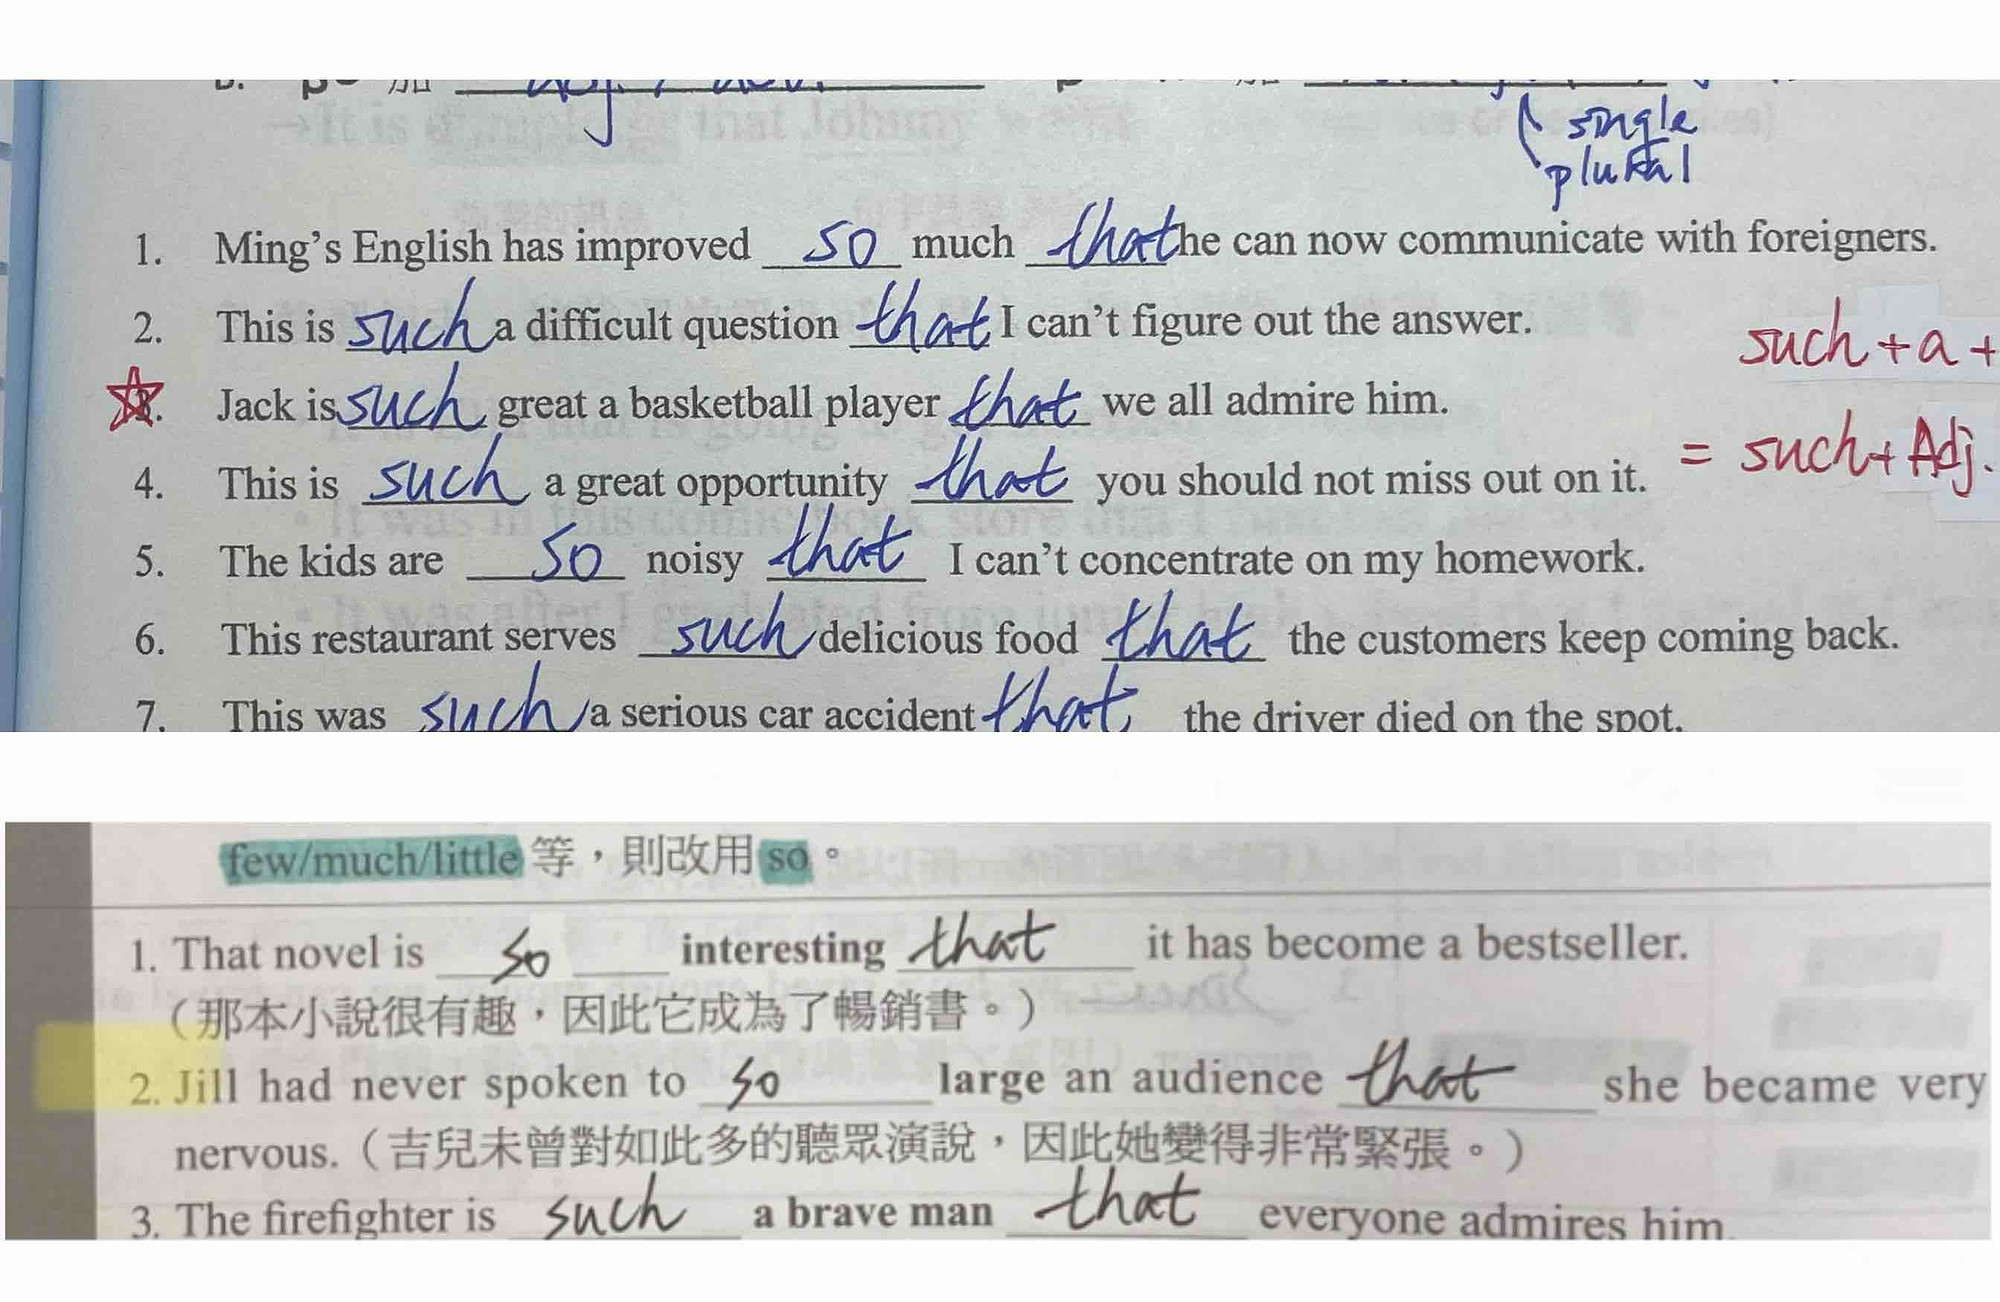 single
plural
1. Ming's English has improved so much that he can now communicate with foreigners.
2. This is such a difficult question that I can't figure out the answer.
such + a +
3. Jack is such great a basketball player that we all admire him.
4. This is such a great opportunity that you should not miss out on it.
= such + Adj.
5. The kids are so noisy that I can't concentrate on my homework.
6. This restaurant serves such delicious food that the customers keep coming back.
7. This was such a serious car accident that the driver died on the spot.
few/much/little 等，則改用 so。
1. That novel is so interesting that it has become a bestseller.
（那本小說很有趣，因此它成為了暢銷書。）
2. Jill had never spoken to so large an audience that she became very
nervous.（吉兒未曾對如此多的聽眾演說，因此她變得非常緊張。）
3. The firefighter is such a brave man that everyone admires him.